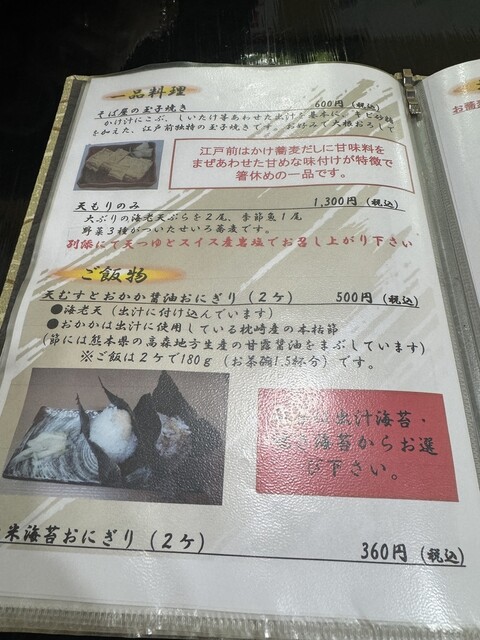 一品料理
そば屋の玉子焼き 600円（税込）
かけ汁にこぶ、しいたけ等あわせた出汁を基本に、キビ砂糖
を加えた、江戸前独特の玉子焼きです。お好みで大根おろしで
江戸前はかけ蕎麦だしに甘味料を
まぜあわせた甘めな味付けが特徴で
箸休めの一品です。
天もりのみ 1,300円（税込）
大ぶりの海老天ぷらを2尾、季節魚1尾
野菜3種がついたせいろ蕎麦です。
別添にて天つゆとスイス産岩塩でお召し上がり下さい
ご飯物
天むすとおかか醤油おにぎり（2ケ） 500円（税込）
●海老天（出汁に付け込んでいます）
●おかかは出汁に使用している枕崎産の本枯節
（節には熊本県の高森地方生産の甘露醤油をまぶしています）
※ご飯は2ケで180g（お茶碗1.5杯分）です。
出汁海苔・
海苔からお選
び下さい。
米海苔おにぎり（2ケ） 360円（税込）